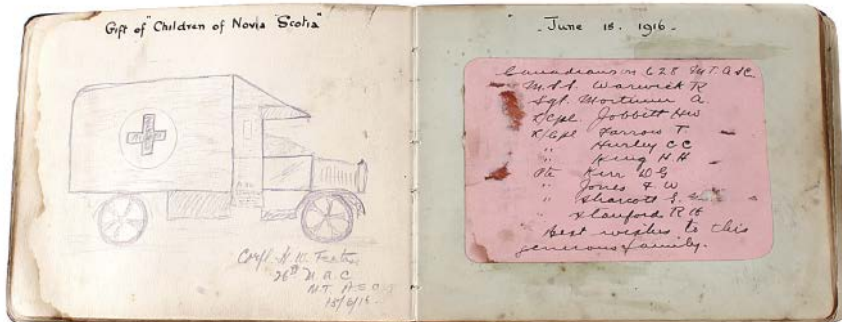 Gift of "Children of Novia "Scotia"
Corpl. H. K.
26th M. A. C
M.T. A S C
18/6/16.
June 18. 1916.
Canadians in 628 M.T. A S C.
M.S.S. Warwick R
Sgt. Mortimer A.
L/Cpl. Jobbitt
L/Cpl Farrow T.
" Hurley CC
" King H H
Pte Kerr D G
" Jones F. W
" Sharcott S.
" Stanford R H
Best wishes to this
generous family.